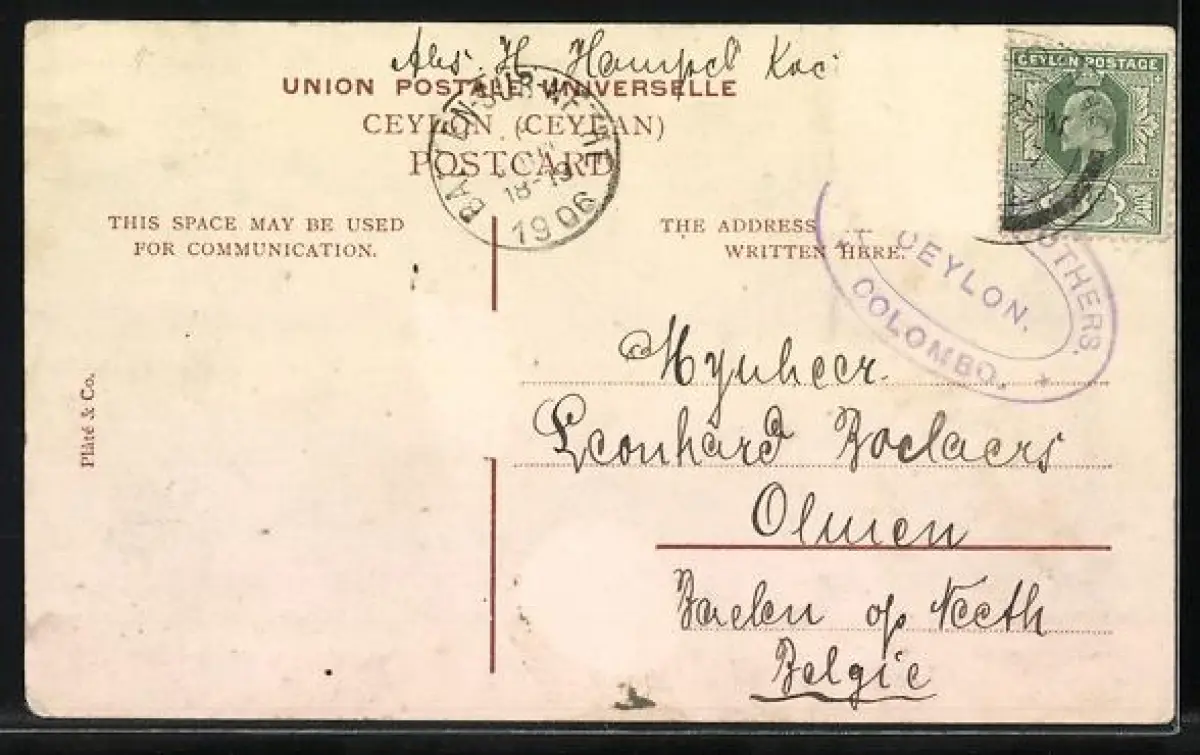 Abs. H. Hampel
UNION POSTALE UNIVERSELLE
CEYLON (CEYLAN)
POSTCARD
CEYLON POSTAGE
BAELEN-SUR-NETHE
18-19
1906
THIS SPACE MAY BE USED
FOR COMMUNICATION.
THE ADDRESS
WRITTEN HERE.
OTHERS.
CEYLON.
COLOMBO.
Plâté & Co.
Mynheer
Leonhard Boelaers
Olmen
Baelen op Neeth
Belgie